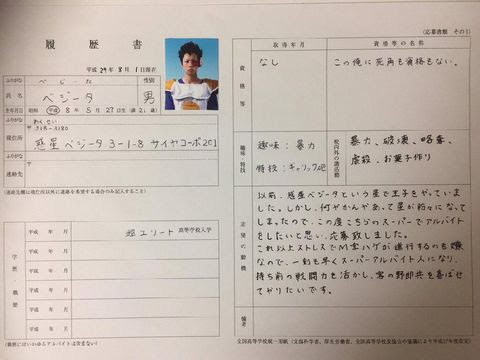 (応募書類 その1)
履歴書
平成29年8月1日現在
ふりがな べじーた 性別
氏名 ベジータ 男
生年月日 昭和 平成 8年5月27日生(満21歳)
ふりがな わくせい
現住所
惑星ベジータ3-1-8 サイヤコーポ201
ふりがな
連絡先 〒
(連絡先欄は現住所以外に連絡を希望する場合のみ記入すること)
学歴・職歴
平成 年 月 超エリート高等学校入学
平成 年 月
平成 年 月
平成 年 月
平成 年 月
平成 年 月
(職歴にはいわゆるアルバイトは含まない)
資格等
取得年月 資格等の名称
なし この俺に死角も資格もない。
趣味・特技
趣味:暴力
特技:ギャリック砲
校内外の諸活動
暴力、破壊、略奪、
虐殺、お菓子作り
志望の動機
以前、惑星ベジータという星で王子をやっていま
した。しかし、何やかんやあって星が粉々になって
しまったので、この度こちらのスーパーでアルバイト
をしたいと思い、応募致しました。
これ以上ストレスでM字ハゲが進行するのも嫌
なので、一刻も早くスーパーアルバイト人になり、
持ち前の戦闘力を活かし、客の野郎共を喜ばせ
てやりたいです。
備考
全国高等学校統一用紙(文部科学省、厚生労働省、全国高等学校長協会の協議により平成17年度改定)